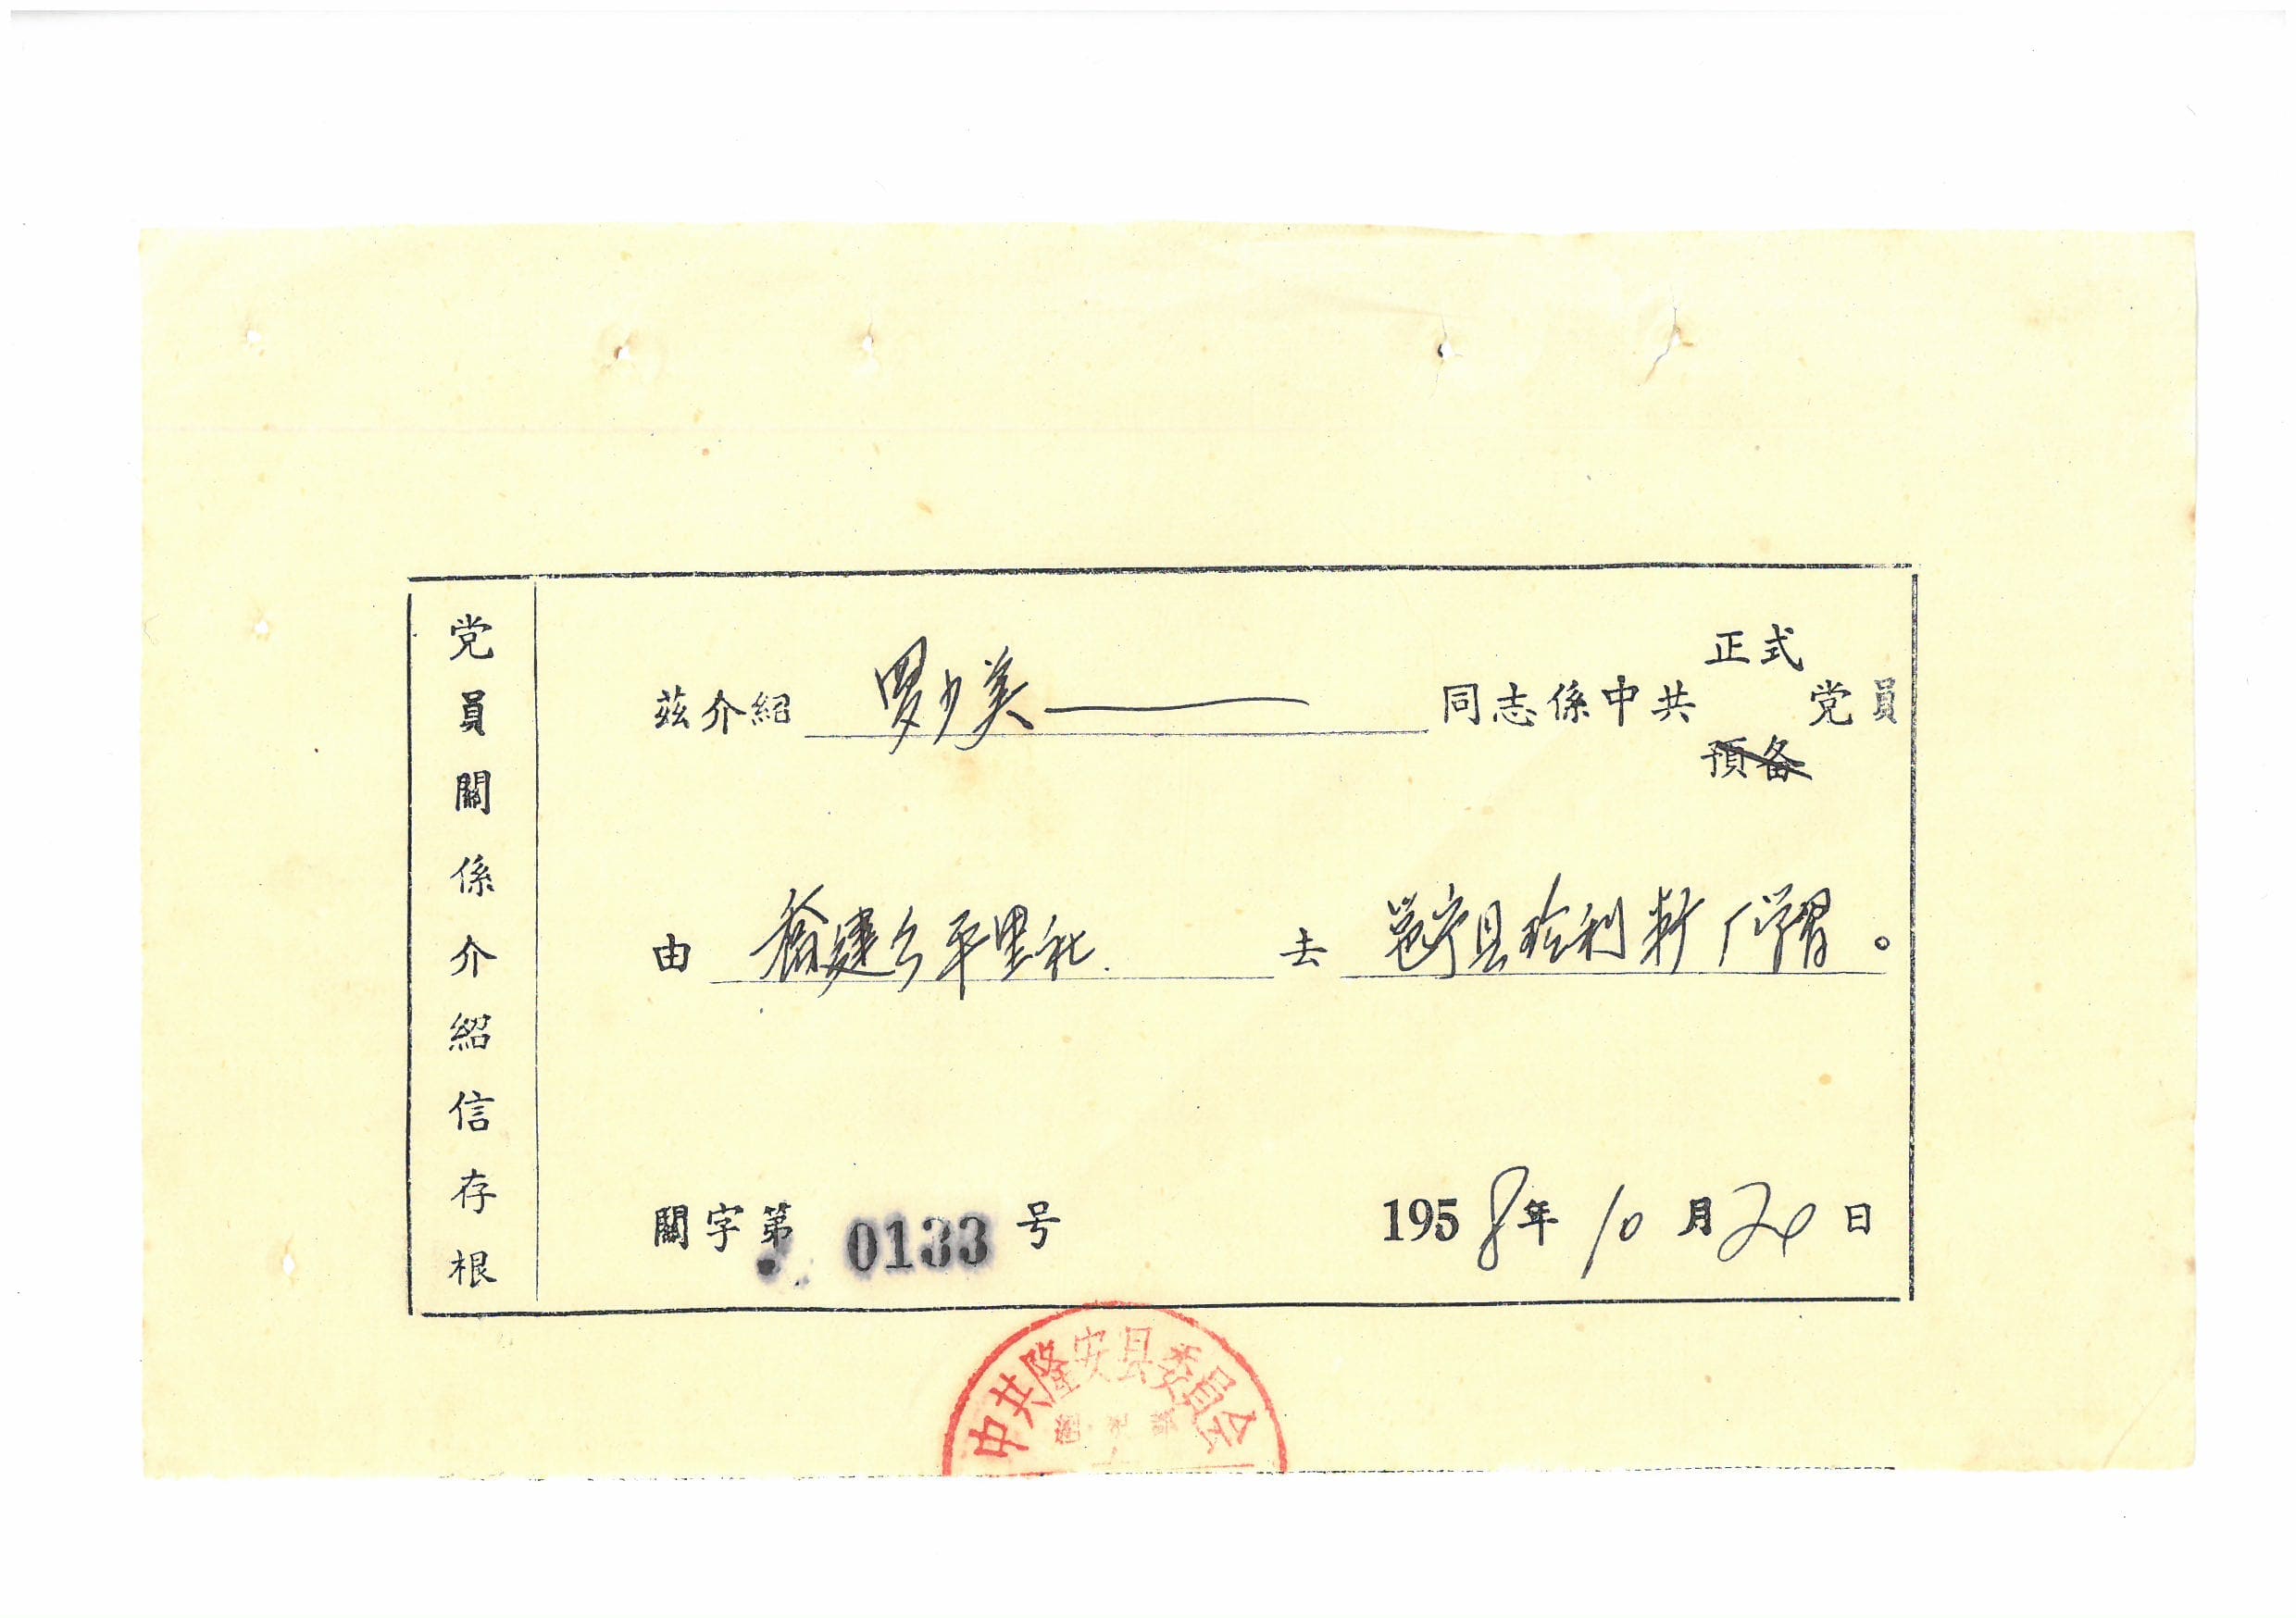 党員關係介紹信存根
茲介紹 罗少美 同志係中共 正式 党員
預备
由 喬建乡平里社. 去 邕宁县 利 厂学习。
關字第 0133 号
1958年10月20日
中共隆安县委員会